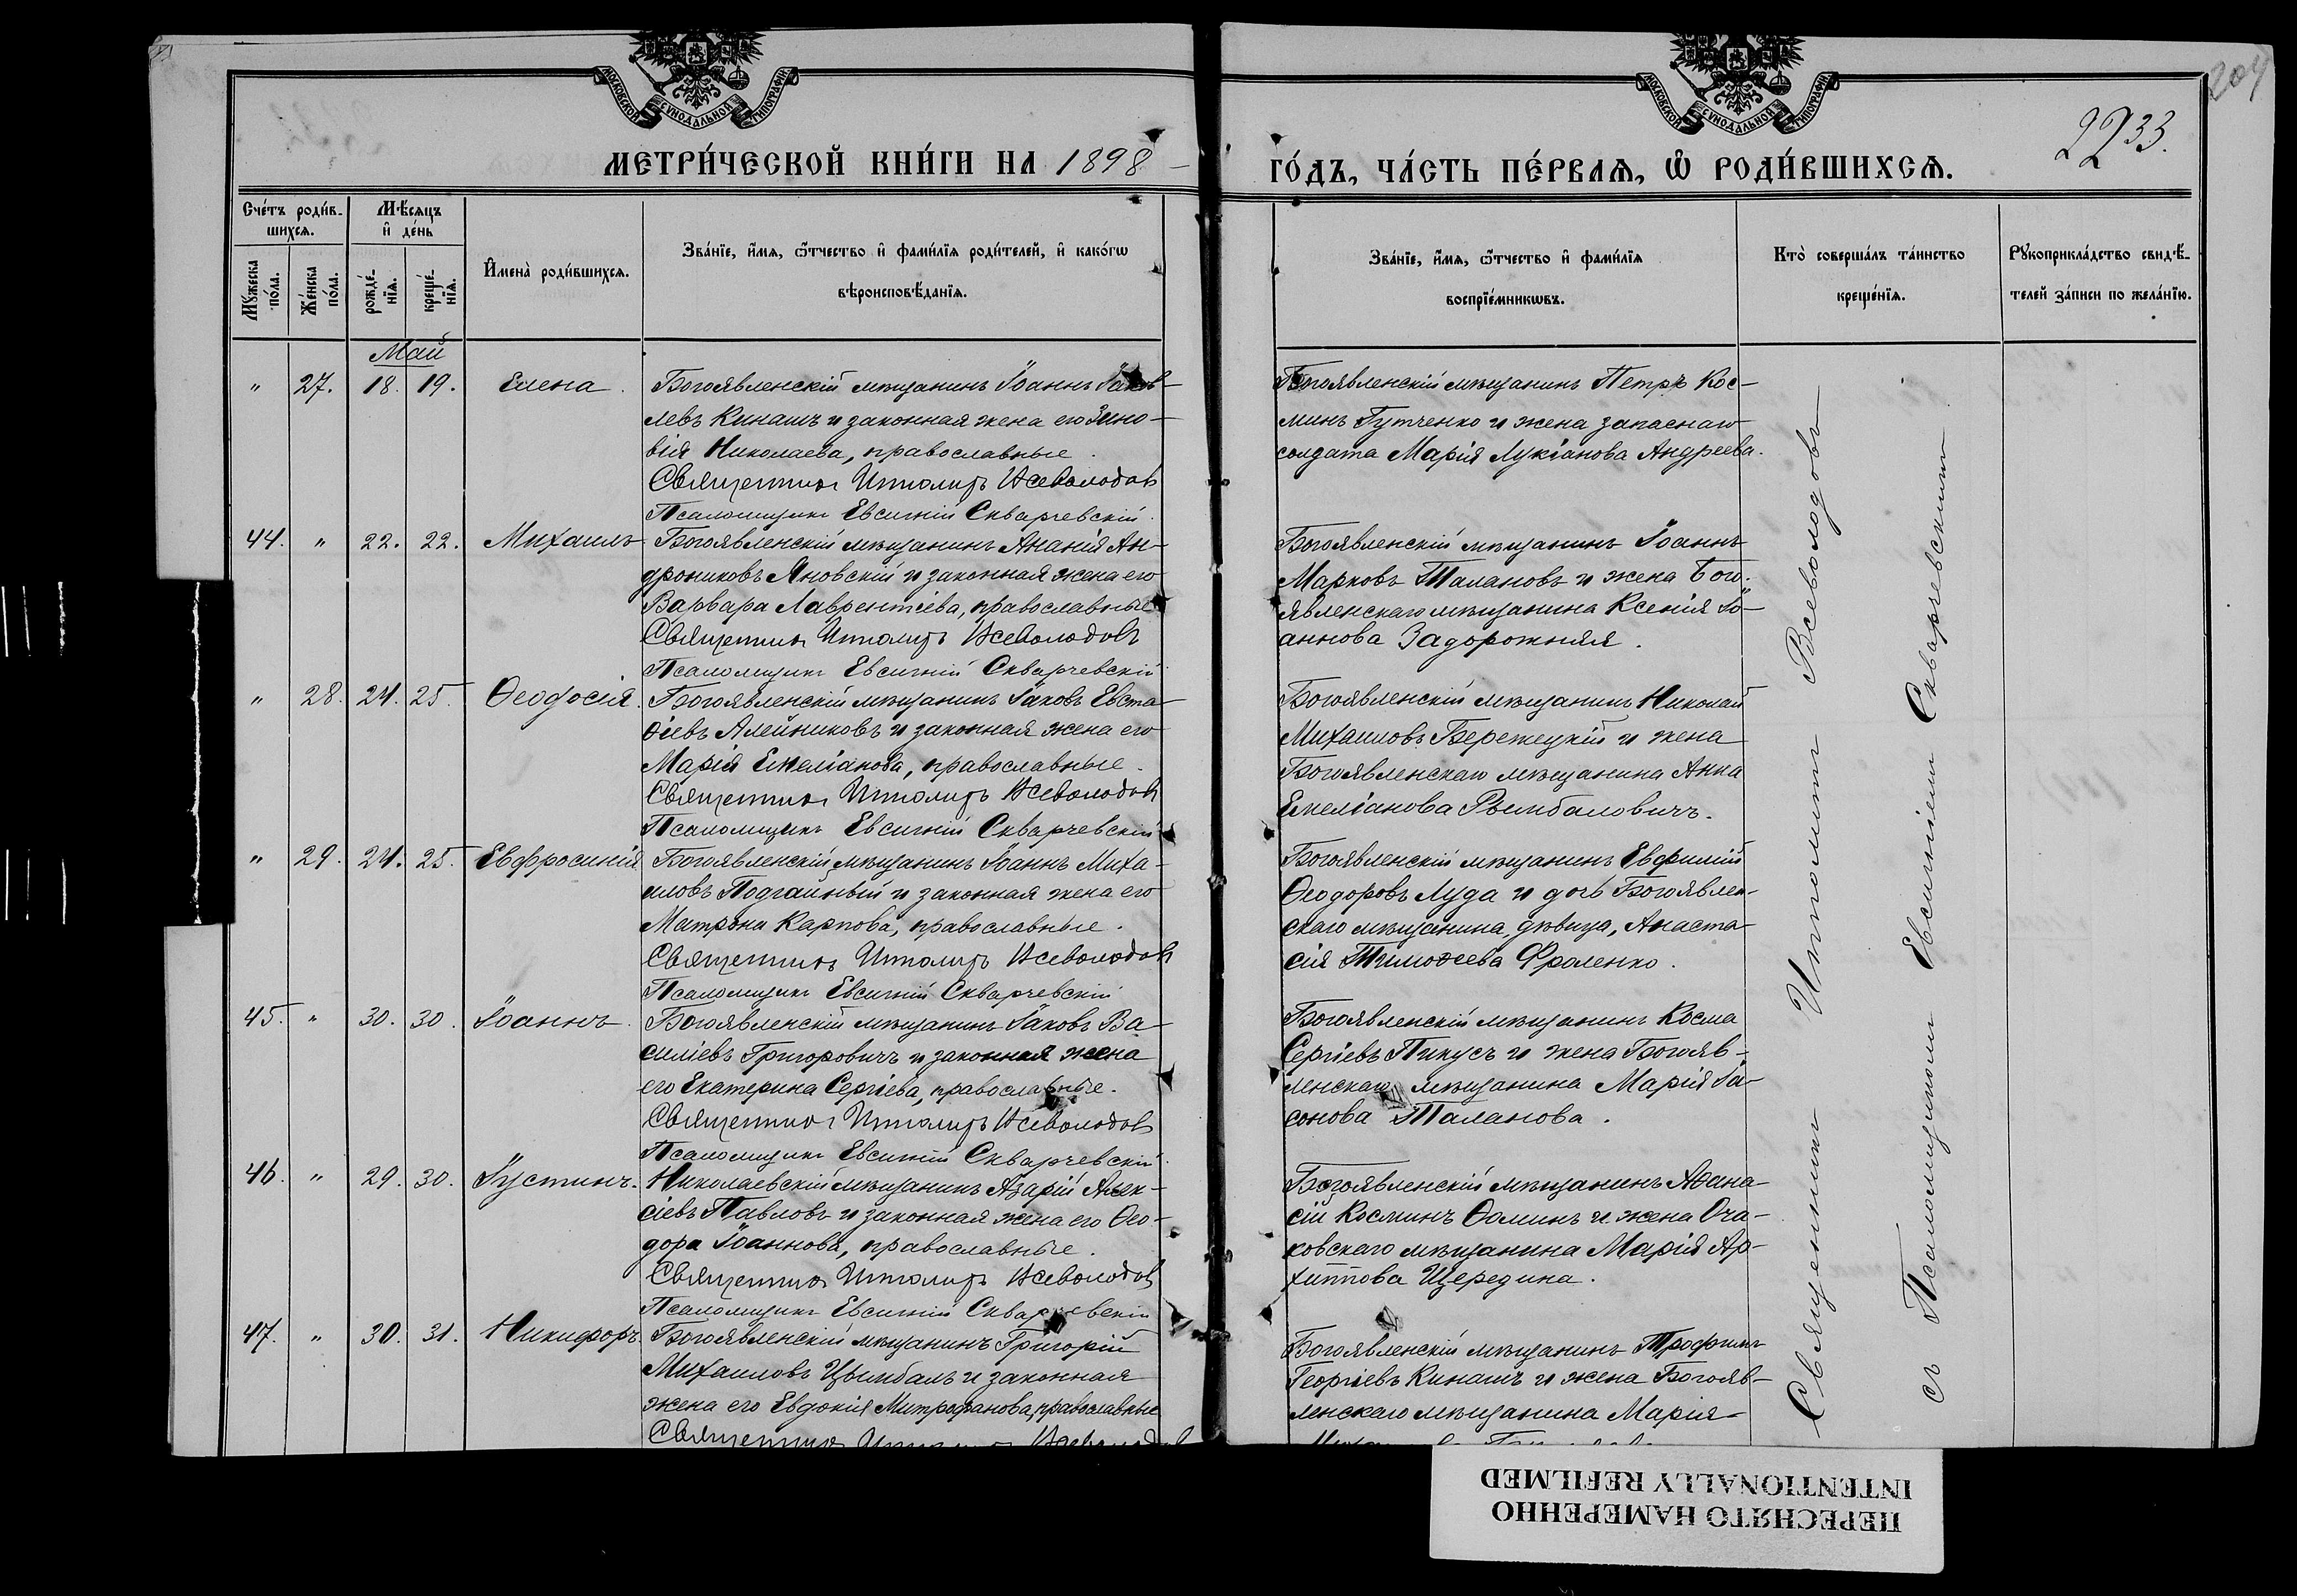 МОСКОВСКОЙ СѴНОДАЛЬНОЙ ТИПОГРАФІИ
МОСКОВСКОЙ СѴНОДАЛЬНОЙ ТИПОГРАФІИ
204
2233.
МЕТРИ́ЧЕСКОЙ КНИ́ГИ НА 1898
ГО́ДЪ, ЧА́СТЬ ПЕ́РВАѦ, Ѽ РОДИ́ВШИХСѦ.
Сче́тъ роди́в-
шихсѧ.
Мѣ́сѧцъ
и҆ де́нь
Мꙋ́жеска
по́ла.
Же́нска
по́ла.
рожде́-
нїѧ.
креще́-
нїѧ.
И҆мена̀ роди́вшихсѧ.
Зва́нїе, и҆́мѧ, ѻ҆́тчество и҆ фами́лїѧ роди́телей, и҆ како́гѡ
вѣроисповѣ́данїѧ.
Зва́нїе, и҆́мѧ, ѻ҆́тчество и҆ фами́лїѧ
воспрїе́мникѡвъ.
Кто̀ соверша́лъ та́инство
креще́нїѧ.
Рꙋкоприкла́дство свидѣ́-
телей за́писи по жела́нїю.
Май
" 27. 18. 19. Елена.
Богоявленскій мѣщанинъ Іоаннъ Іаков-
левъ Кинашъ и законная жена его Зино-
вія Николаева, православные.
Священникъ Ипполитъ Всеволодовъ
Псаломщикъ Евсигній Скварчевскій.
Богоявленскій мѣщанинъ Петръ Кос-
минъ Гутченко и жена запаснаго
солдата Марія Лукіанова Андреева.
44. " 22. 22. Михаилъ
Богоявленскій мѣщанинъ Ананія Ан-
дрониковъ Яновскій и законная жена его
Варвара Лаврентіева, православные
Священникъ Ипполитъ Всеволодовъ
Псаломщикъ Евсигній Скварчевскій
Богоявленскій мѣщанинъ Іоаннъ
Марковъ Талановъ и жена Бого-
явленскаго мѣщанина Ксенія Іо-
аннова Задорожняя.
" 28. 24. 25. Ѳеодосія.
Богоявленскій мѣщанинъ Іаковъ Евста-
ѳіевъ Алейниковъ и законная жена его
Марія Емеліанова, православные.
Священникъ Ипполитъ Всеволодовъ
Псаломщикъ Евсигній Скварчевскій
Богоявленскій мѣщанинъ Николай
Михаиловъ Бережецкій и жена
Богоявленскаго мѣщанина Анна
Емеліанова Рымбаловичъ.
" 29. 24. 25. Евфросинія
Богоявленскій мѣщанинъ Іоаннъ Миха-
иловъ Подгайный и законная жена его
Матрона Карпова, православные.
Священникъ Ипполитъ Всеволодовъ
Псаломщикъ Евсигній Скварчевскій
Богоявленскій мѣщанинъ Евфимій
Ѳеодоровъ Луда и дочь Богоявлен-
скаго мѣщанина, дѣвица, Анаста-
сія Тимоѳеева Фроленко.
45. " 30. 30. Іоаннъ.
Богоявленскій мѣщанинъ Іаковъ Ва-
силіевъ Григоровичъ и законная жена
его Екатерина Сергіева, православные.
Священникъ Ипполитъ Всеволодовъ
Псаломщикъ Евсигній Скварчевскій.
Богоявленскій мѣщанинъ Косма
Сергіевъ Пикусъ и жена Богояв-
ленскаго мѣщанина Марія Іа-
сонова Таланова.
46. " 29. 30. Іустинъ.
Николаевскій мѣщанинъ Азарій Алек-
сіевъ Павловъ и законная жена его Ѳео-
дора Іоаннова, православные.
Священникъ Ипполитъ Всеволодовъ
Псаломщикъ Евсигній Скварчевскій
Богоявленскій мѣщанинъ Аѳана-
сій Косминъ Ѳоминъ и жена Оча-
ковскаго мѣщанина Марія Ар-
хиппова Щередина.
47. " 30. 31. Никифоръ.
Богоявленскій мѣщанинъ Григорій
Михаиловъ Цымбалъ и законная
жена его Евдокія Митрофанова, православные
Священникъ Ипполитъ Всеволодовъ
Богоявленскій мѣщанинъ Трофимъ
Георгіевъ Кинашъ и жена Богояв-
ленскаго мѣщанина Марія
Священникъ Ипполитъ Всеволодовъ
съ Псаломщикомъ Евсигніемъ Скварчевскимъ
ПЕРЕСНЯТО НАМЕРЕННО
INTENTIONALLY REFILMED